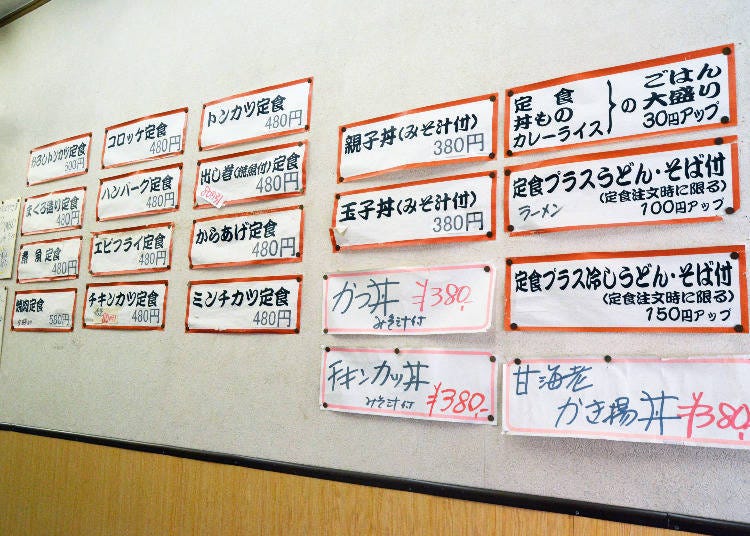 おろしトンカツ定食
500円
まぐろ造り定食
480円
煮魚定食
480円
焼肉定食
580円
コロッケ定食
480円
ハンバーグ定食
480円
エビフライ定食
480円
チキンカツ定食
480円
トンカツ定食
480円
出し巻(焼魚付)定食
480円
からあげ定食
480円
ミンチカツ定食
480円
親子丼(みそ汁付)
380円
玉子丼(みそ汁付)
380円
かつ丼 ¥380.-
みそ汁付
チキンカツ丼
みそ汁付 ¥380.-
定食
丼もの
カレーライス
の ごはん
大盛り
30円アップ
定食プラスうどん・そば付
(定食注文時に限る)
ラーメン
100円アップ
定食プラス冷しうどん・そば付
(定食注文時に限る)
150円アップ
甘海老
かき揚丼 ¥380.